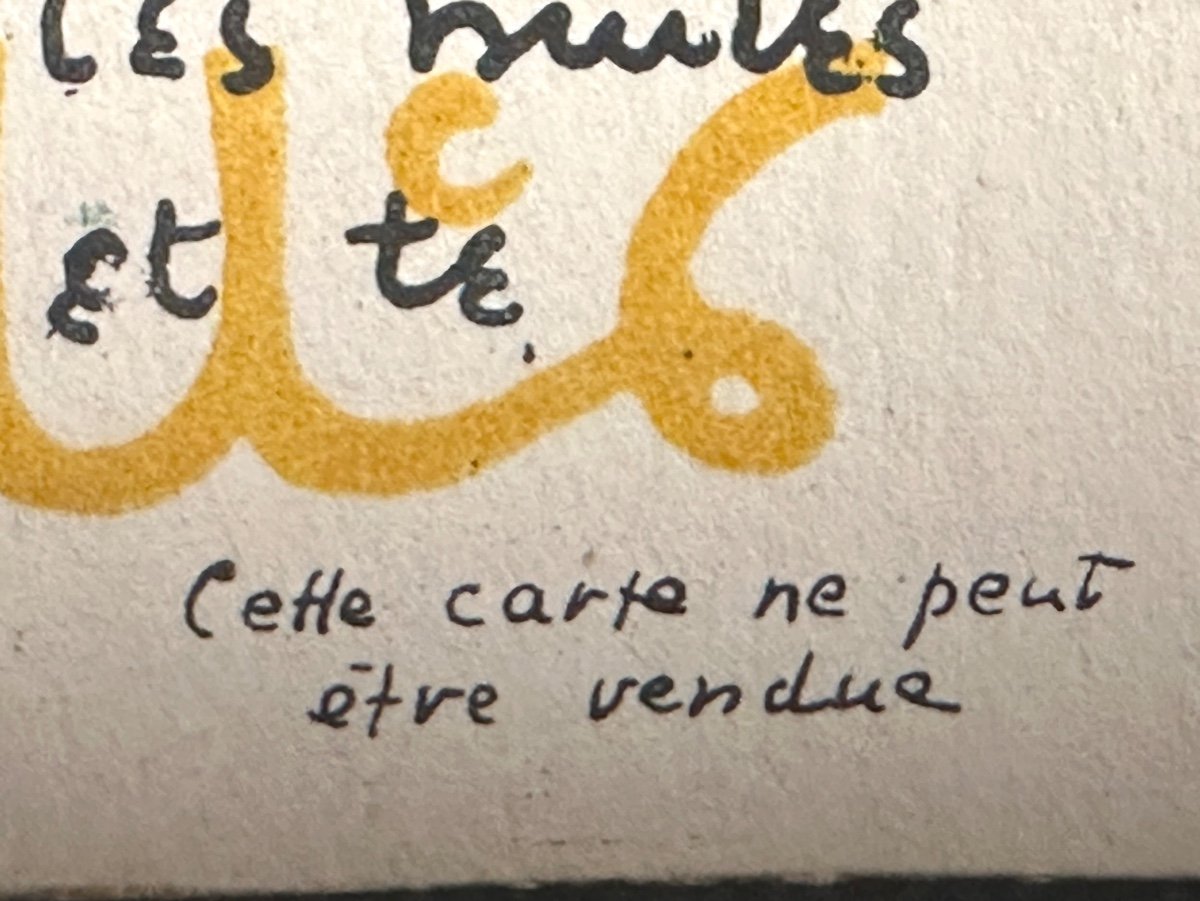 les
et te
Cette carte ne peut
être vendue